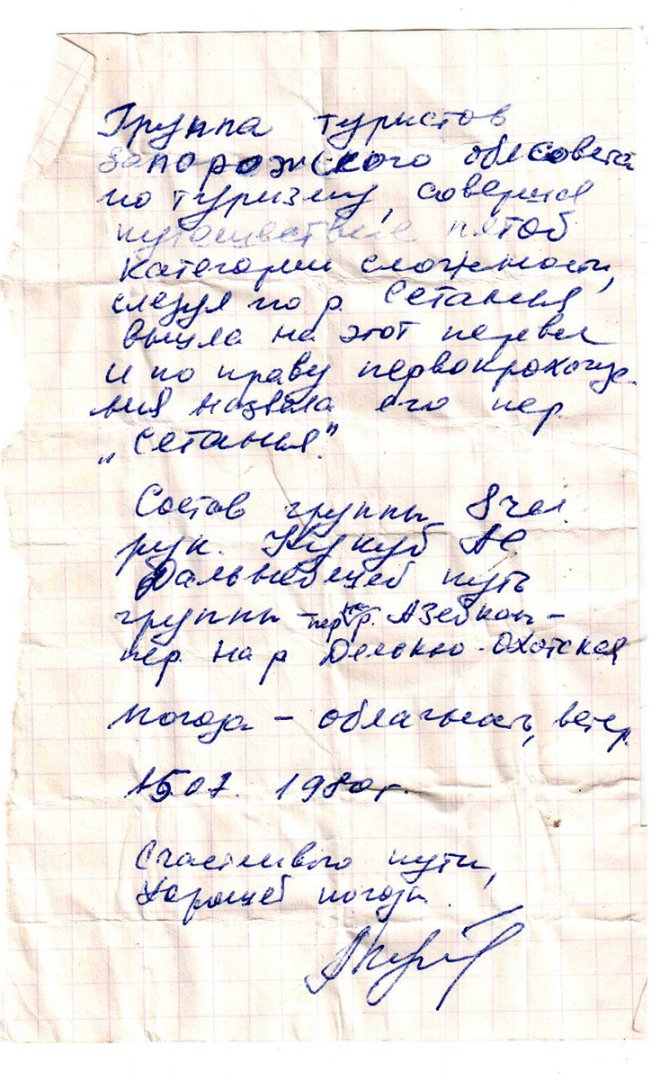 Группа туристов
Запорожского облсовета
по туризму, совершая
путешествие пятой
категории сложности,
следуя по р. Сетанья,
вышла на этот перевал
и по праву первопрохожде-
ния назвала его пер.
„Сетанья."
Состав группы 8 чел.
рук. Кукуб АС
Дальнейший путь
группы – пер. на р. Азейкан –
пер. на р Делькю-Охотская
Погода – облачность, ветер.
15 07. 1980г.
Счастливого пути,
Хорошей погоды.